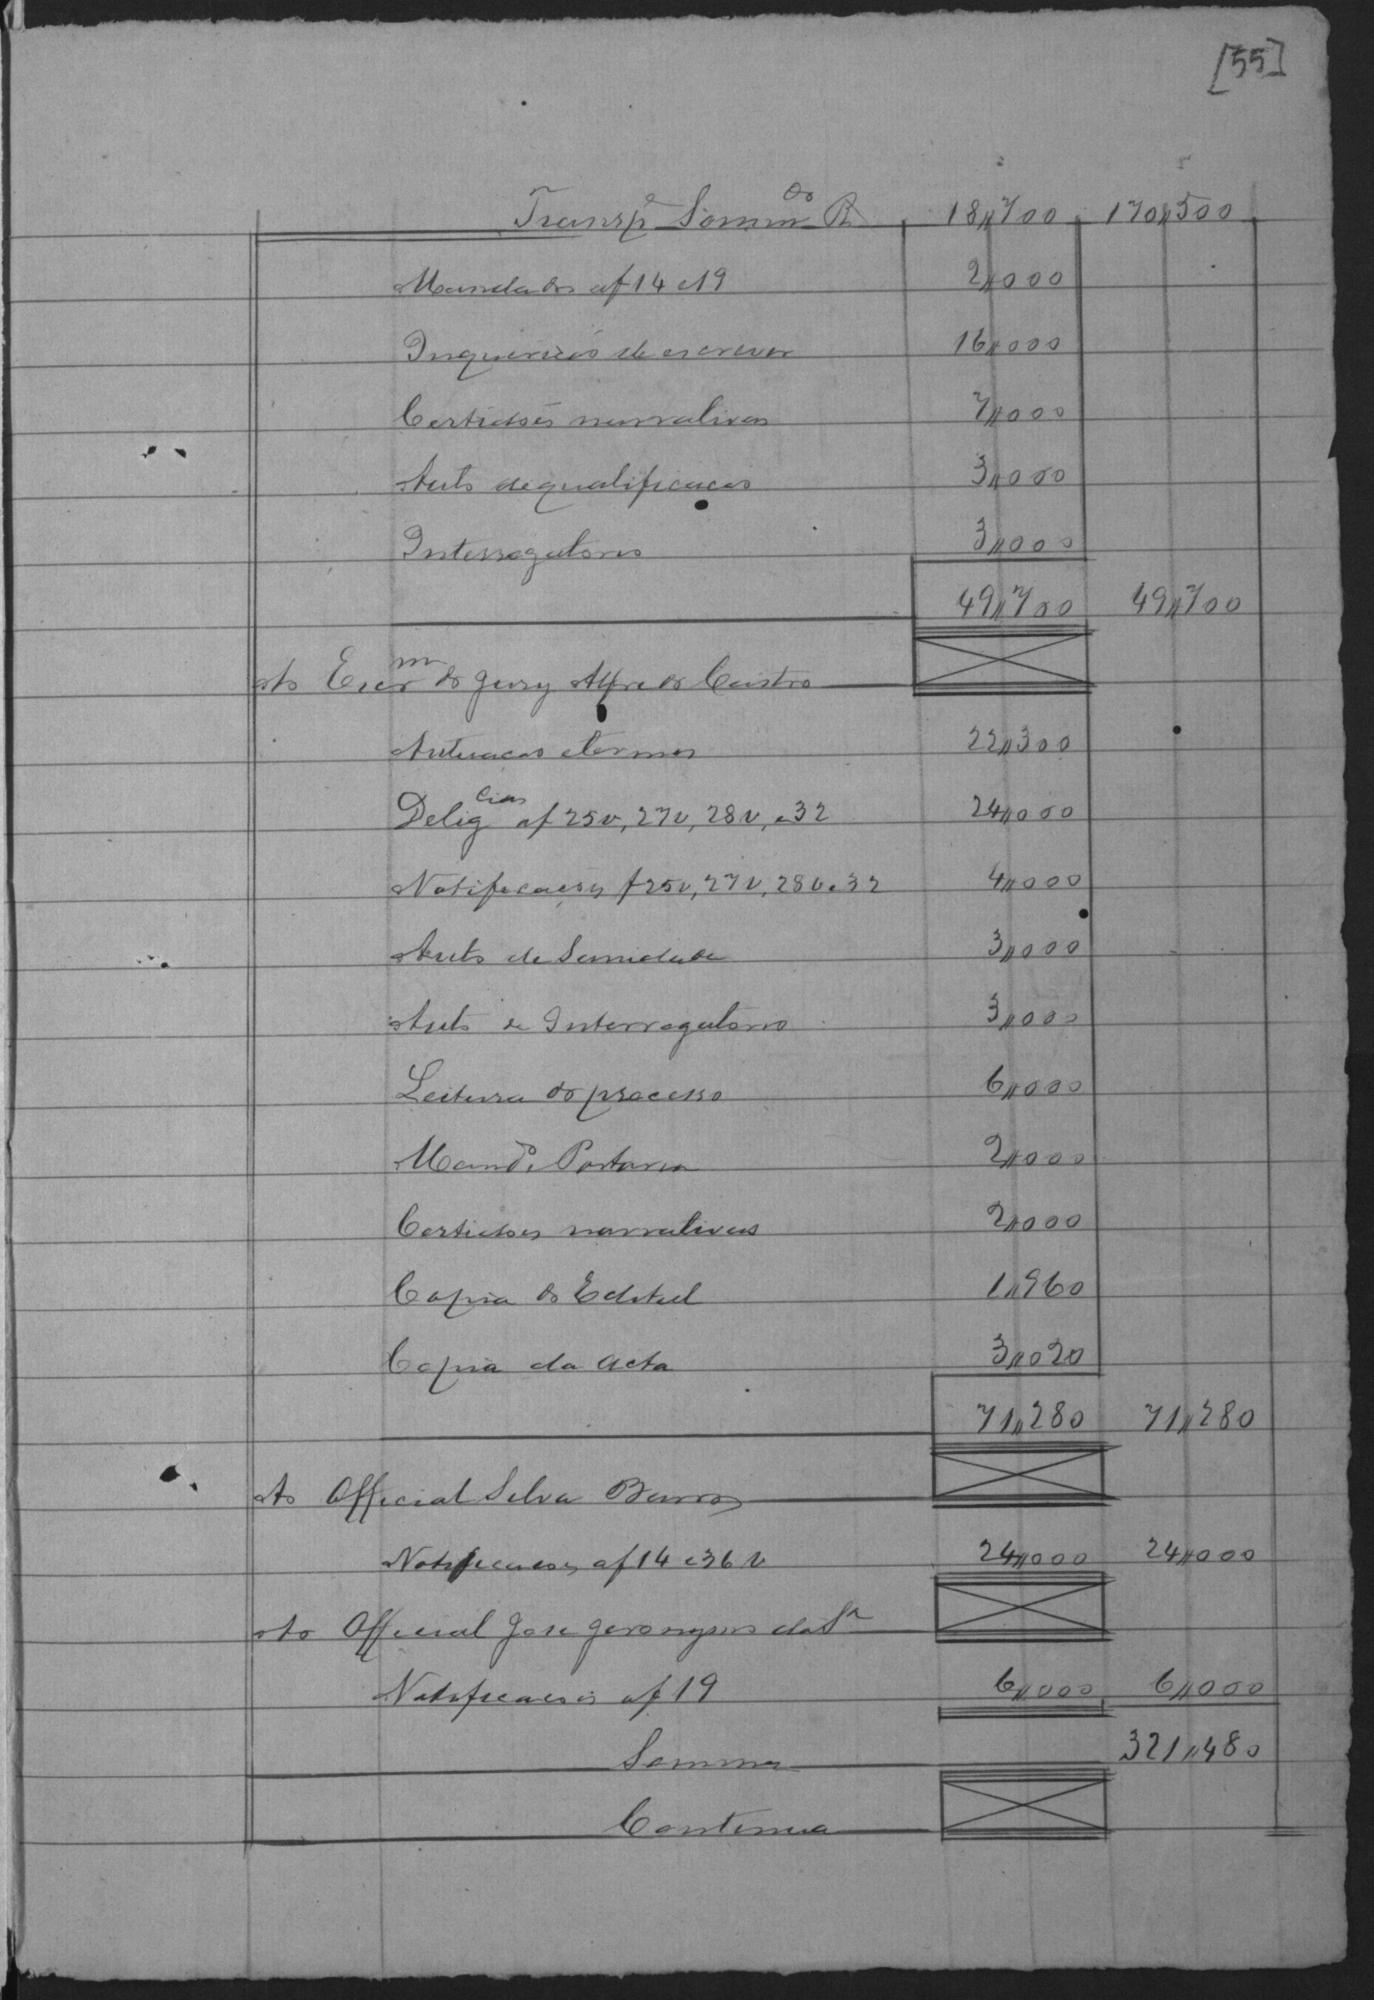 [55]
Transpe Somma do R 18,,700 170,,500
Mandados af 14 e 19 2,,000
Inquericões de escrever 16,,000
Certidões narrativas 7,,000
Auto de qualificacao 3,,000
Interrogatorio 3,,000
49,,700 49,,700
Ao Escrm do Jury Alfredo Castro
Autuacao e termos 22,,300
Deligcias af 25v, 27v, 28v, e 32 24,,000
Notificacões f 25v, 27v, 28v e 32 4,,000
Auto de Sanidade 3,,000
Auto de Interrogatorio 3,,000
Leitura do processo 6,,000
Mando e Portaria 2,,000
Certidões narrativas 2,,000
Copia do Edital 1,,960
Copia da acta 3,,020
71,,280 71,,280
Ao Official Silva Barros
Notificacões af 14 e 36v 24,,000 24,,000
Ao Official Jose Jeronymo da Sa
Notificacões af 19 6,,000 6,,000
Somma 321,,480
Continua